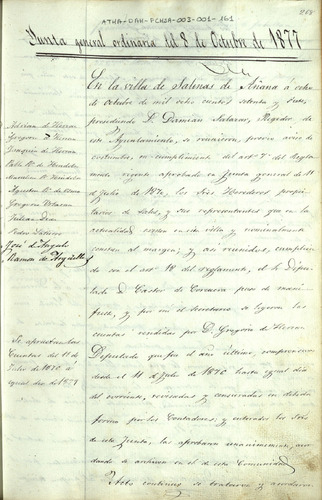 ATHA-DAH-PCHSA-003-001-161
Junta general ordinaria del 8 de Octubre de 1877
En la villa de Salinas de Añana á ocho
de Octubre de mil ocho cientos setenta y siete,
presidiendo D. Damian Salazar, Regidor de
este Ayuntamiento, se reunieron, previo aviso de
costumbre, en cumplimiento del artº 7º del Regla
mento vigente aprobado en Junta general de 11
de Julio de 187, los Sres Herederos propie
tarios de Salas, y sus representantes que en la
actualidad en su villa y nominalmente
constan al margen; y asi reunidos, cumplien
do con el artº 18 del reglamento, el Sr Dipu
tado D. Castor de puso de mani
fiesto, y por mi el Secretario se leyeron las
cuentas rendidas por D. Gregorio de Herran
Diputado que fué el año último, comprensivas
desde el 11 de Julio de 1876 hasta igual dia
del corriente, revisadas y censuradas en debida
forma por los Contadores; y enterados los Sres
de esta Junta, las aprobaron unanimemente, acor
dando se archiven en el de esta Comunidad.
Acto continuo se trataron y acordaron
Adrian de Herran
Gregorio de Herran
Joaquin de Herran
Julian
Pedro
José de Angulo
Ramon de
Se aprueban las
Cuentas del 11 de
Julio de 1876 á
igual dia de 1877